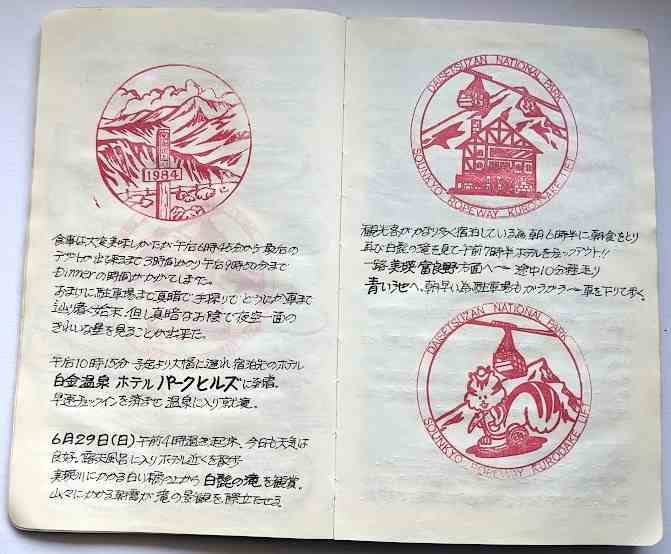 1984
食事は大変美味しかったが午后6時45分から最后の
デザートの出て来るまで3時間かかり午后9時50分まで
Dinnerの時間がかかてしまた。
おまけに駐車場まで真暗で手探りで とうにか車まで
辿り着く始末、但し真暗なお陰で夜空一面の
きれいな星を見ることが出来た。
午后10時15分 予定より大幅に遅れ宿泊先のホテル
白金温泉 ホテル パークヒルズに到着。
早速チェックインを済ませ 温泉に入り就寝。
6月29日(日) 午前4時過ぎ起床、今日も天気は
良好。露天風呂に入りホテル近くを散歩
美瑛川にかかる白い橋の上から 白髭の滝を観賞。
山々にかかる朝霧が滝の景観を際立たせる。
DAISETSUZAN NATIONAL PARK
SOUNKYO ROPEWAY KURODAKE LIFT
観光客がかなり多く宿泊している為 朝6時半に朝食をとり
再び白髭の滝を見て午前7時半ホテルをチェックアウト!!
一路 美瑛・富良野方面へ〜 途中10分程走り
青い池へ、朝早い為 駐車場もガラガラ〜 車を下りて歩く。
DAISETSUZAN NATIONAL PARK
SOUNKYO ROPEWAY KURODAKE LIFT